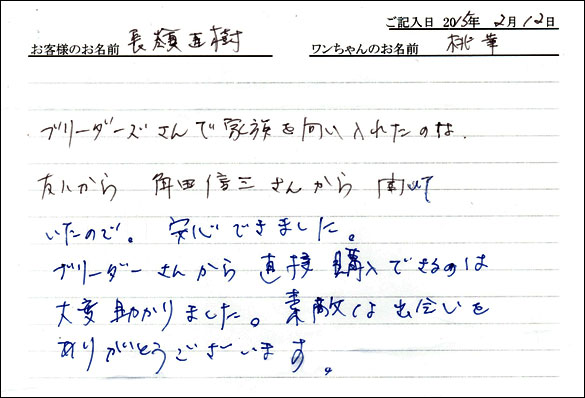 ご記入日 2015年 2月 12日
お客様のお名前 長瀬直樹 ワンちゃんのお名前 桃華
ブリーダーズさんで家族を向い入れたのは、
友人から 角田信三さんから 聞いて
いたので。 安心できました。
ブリーダーさんから 直接 購入できるのは
大変助かりました。素敵な出会いを
ありがとうございます。